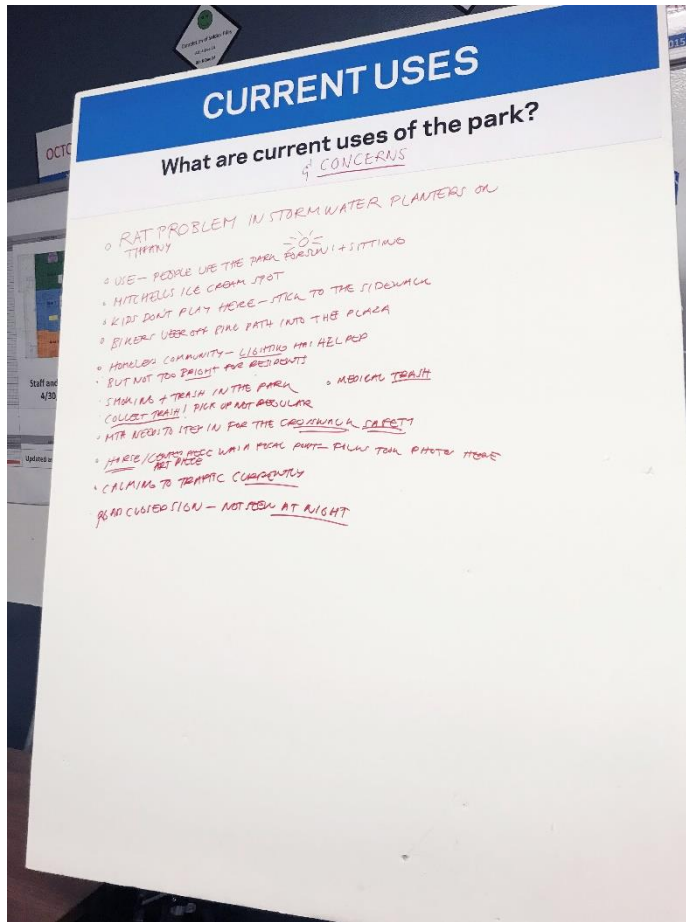 CURRENT USES
What are current uses of the park?
& CONCERNS
RAT PROBLEM IN STORMWATER PLANTERS ON
TIFFANY
USE - PEOPLE USE THE PARK FOR SUN! + SITTING
MITCHELLS ICE CREAM SPOT
KIDS DON'T PLAY HERE - STICK TO THE SIDEWALK
BIKERS VEER OFF BIKE PATH INTO THE PLAZA
HOMELESS COMMUNITY - LIGHTING HAS HELPED
BUT NOT TOO BRIGHT FOR RESIDENTS
SMOKING + TRASH IN THE PARK
MEDICAL TRASH
COLLECT TRASH! PICK UP NOT REGULAR
MTA NEEDS TO STEP IN FOR THE CROSSWALK SAFETY
HORSE / WAS A FOCAL POINT - FOLKS TOOK PHOTOS HERE
ART PIECE
CALMING TO TRAFFIC CURRENTLY
ROAD CLOSED SIGN - NOT SEEN AT NIGHT
OCTO
Staff and
4/30
Updated
015